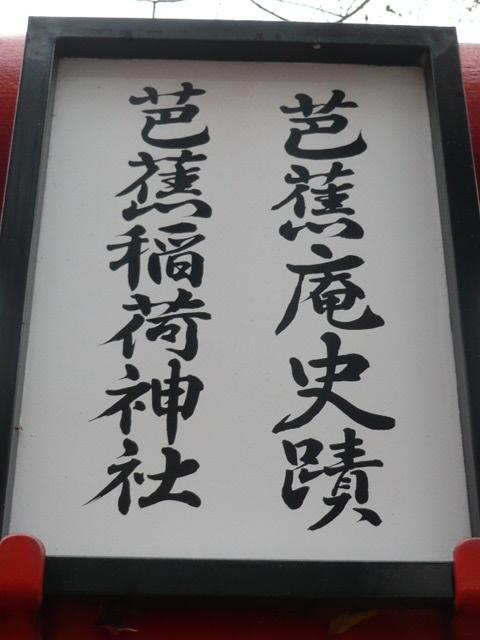 芭蕉庵史蹟
芭蕉稲荷神社